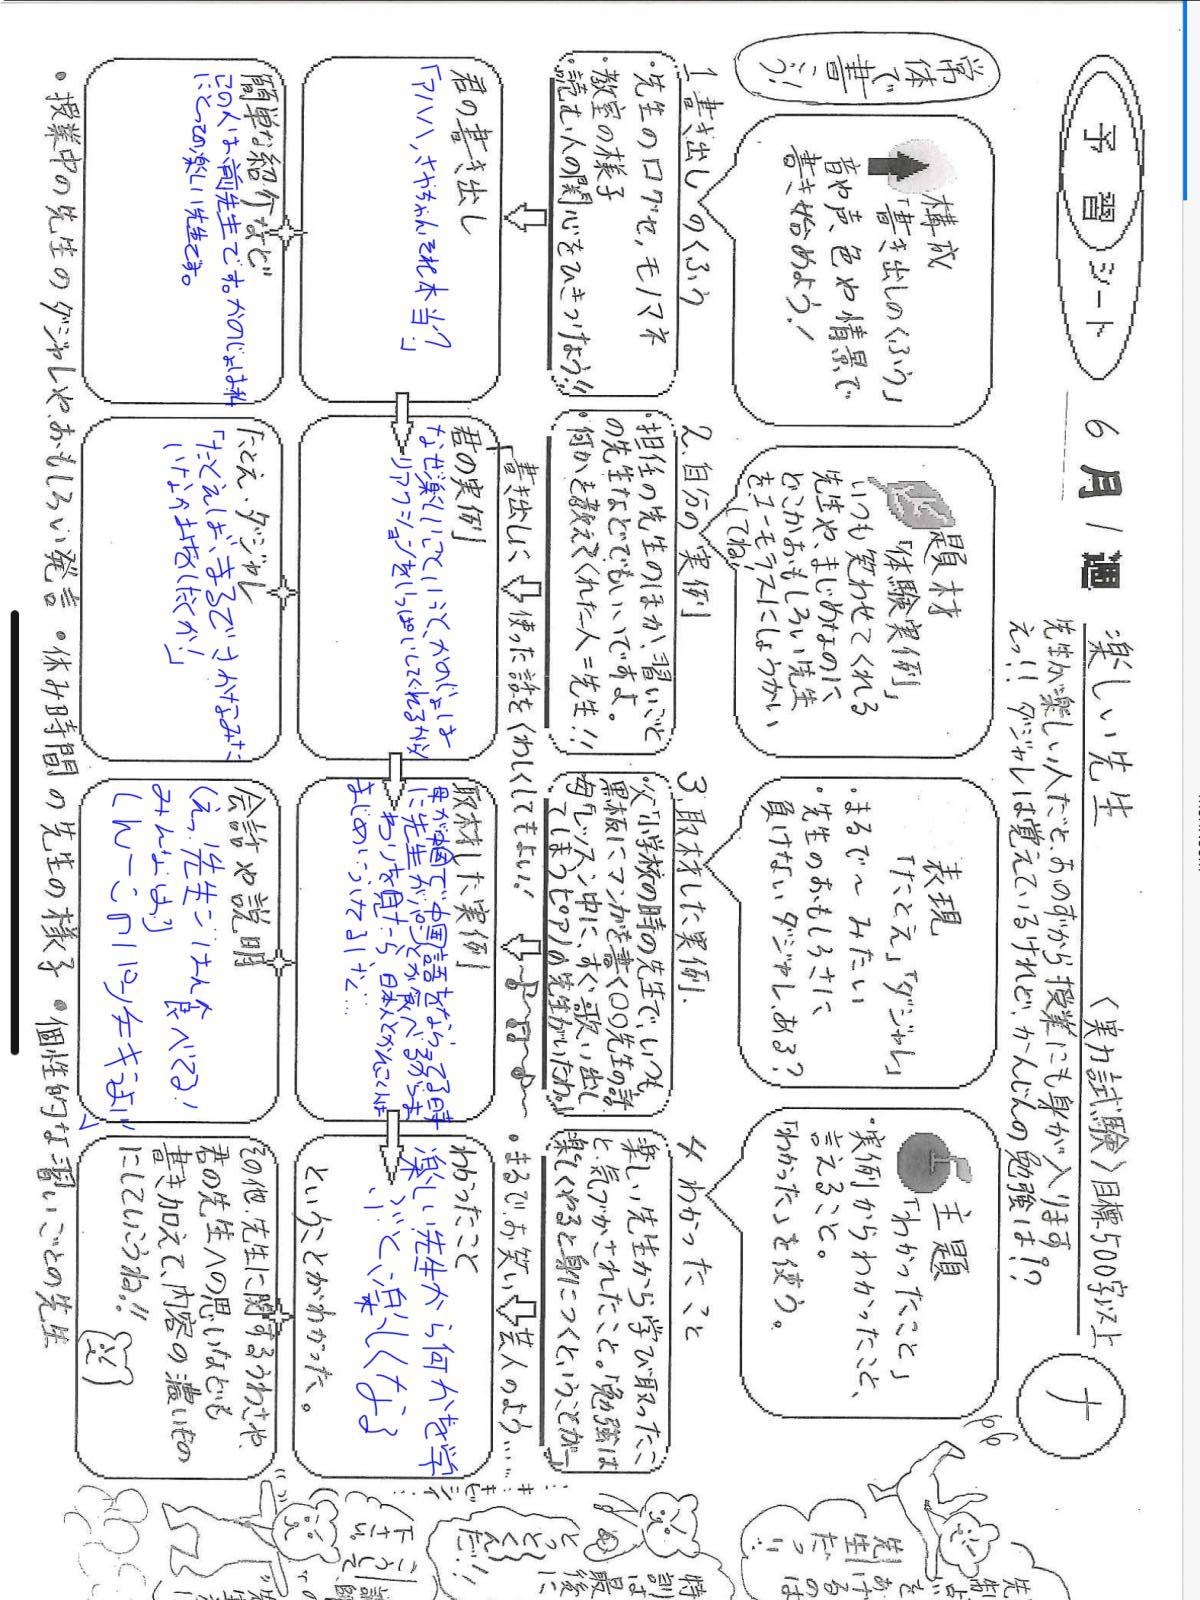 予習シート
6月1週
楽しい先生
〈実力試験〉目標500字以上
ナ
先生が楽しい人だと、あのずから授業にも身が入ります
えっ!! ダジャレは覚えているけれど、かんじんの勉強は!?
常体で書こう!
構成
「書き出しのくふう」
音や声、色や情景で
書き始めよう!
題材
「体験実例」
いつも笑わせてくれる
先生や、まじめなのに、
どこかおもしろい先生
をユーモラスにしょうかい
してね!
表現
「たとえ」「ダジャレ」
・まるで〜みたい
・先生のおもしろさに
負けないダジャレ、ある?
主題
「わかったこと」
・実例からわかったこと、
言えること。
「わかった」を使う。
1 書き出しのくふう
・先生の口グセ、モノマネ
・教室の様子
・読む人の関心をひきつけよう!!
2.自分の実例
・担任の先生のほか、習いごと
の先生などでもいいですよ。
・何かを教えてくれた人=先生!!
3.取材した実例.
・父「小学校の時の先生で、いつも
黒板にマンガを書く〇〇先生の話
・母「レッスン中に、すぐ歌い出し
てしまうピアノの先生がいたわ。」
4 わかったこと
楽しい先生から学び取ったこ
と、気づかされたこと。「勉強は
楽しくやると身につくということが―
書き出しに使った話をくわしくしてもよい!
・まるでお笑い芸人のよう……
君の書き出し
「アハハ、さきちゃんそれ本当?」
君の実例
なぜ楽しいしていうと、かのじょは
リアクションをいっぱいしてくれるから
取材した実例
母が中国で中国語をならってる時
に先生が
日本人とかんこく人は
まじめにうけてるけど…
わかったこと
楽しい先生から何かを学
ぶと楽しくなる
ということがわかった。
簡単な紹介など
この人は前先生です。かのじょは私
にとっての楽しい先生です。
たとえ・ダジャレ
「たとえば、まるでさかなみた
いなかおをしたとか!」
会話や説明
(えっ、先生ごはん食べてる!
みんなは)
しんーこのパン生キュよ!!
その他、先生に関するうわさや、
君の先生への思いなども
書き加えて、内容の濃いもの
にしていこうね!!
・授業中の先生のダジャレや、おもしろい発言 ・休み時間の先生の様子 ・個性的な習いごとの先生